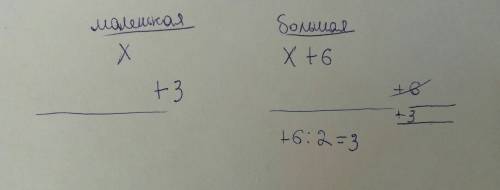 маленькая большая
x x + 6
+ 3 + 6
+ 3
+ 6 : 2 = 3